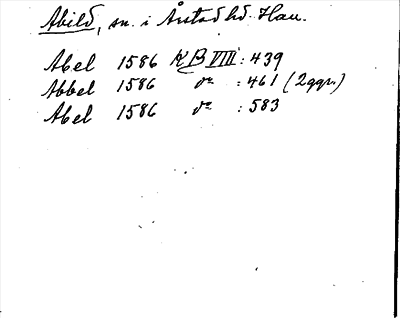 Abild, sn. i Årstad hd. Hall.
Abel 1586 KB VIII : 439
Abbel 1586 d:o : 461 (2 ggr.)
Abel 1586 d:o : 583